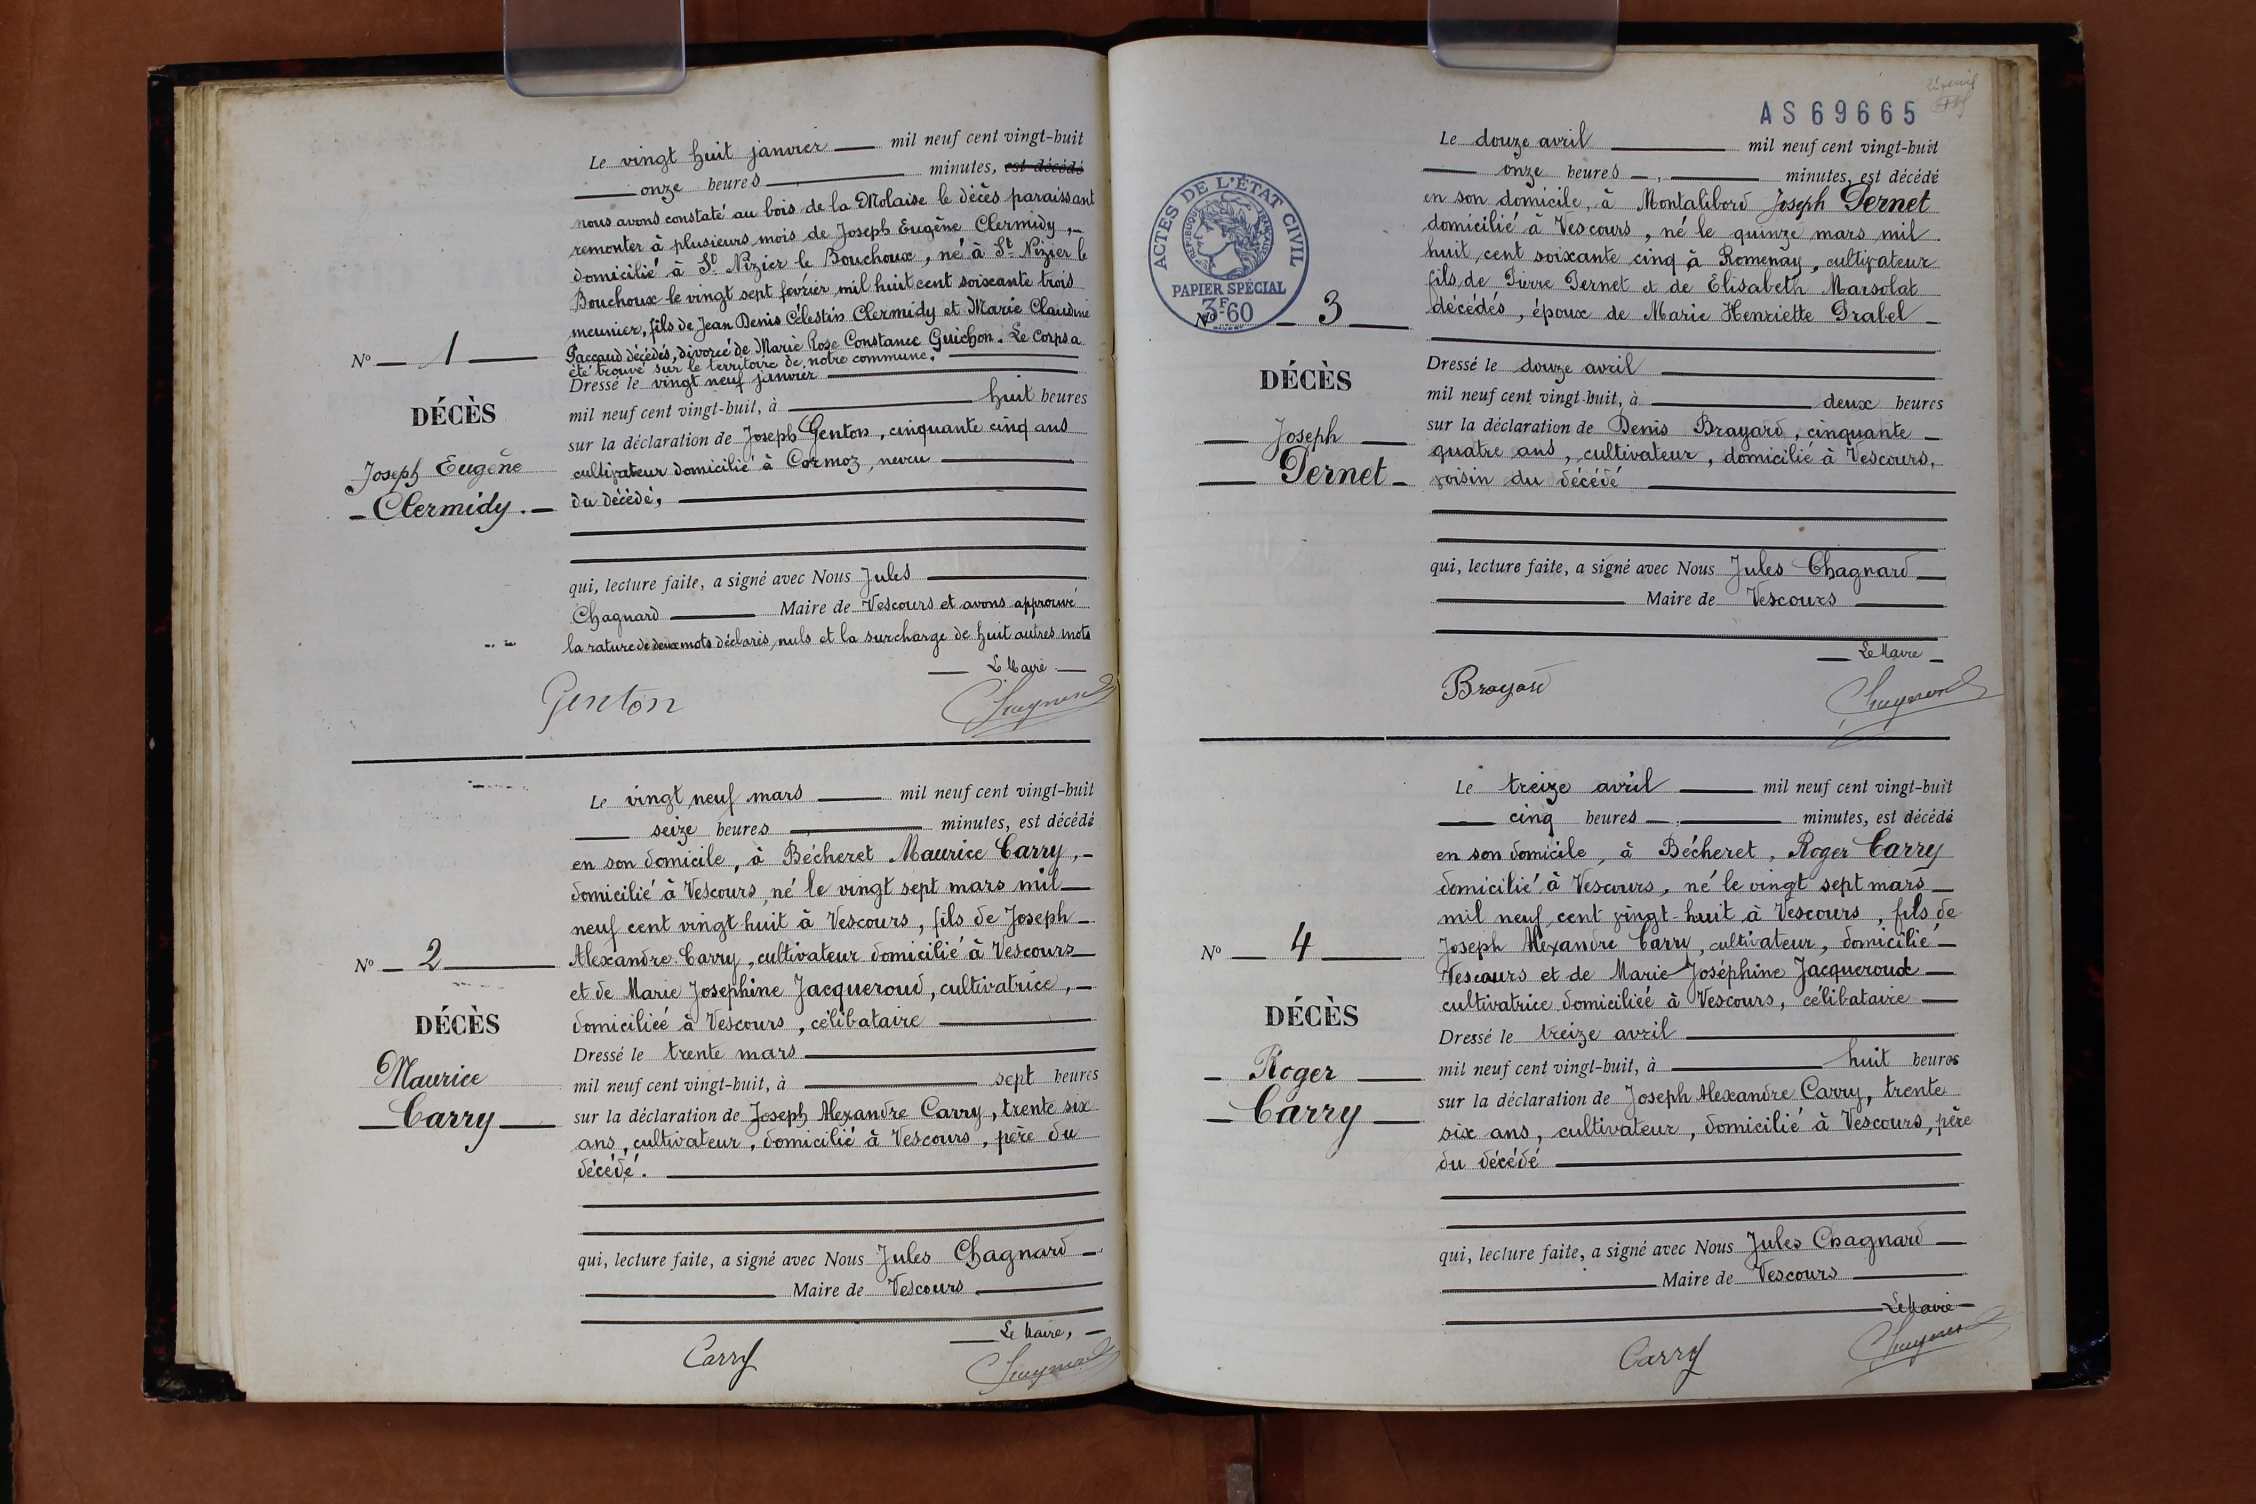 Le vingt huit janvier mil neuf cent vingt-huit
onze heures minutes, est décédé
nous avons constaté au bois de la Molaise le décès paraissant
remonter à plusieurs mois de Joseph Eugène Clermidy,
domicilié à St Nizier le Bouchoux, né à St Nizier le
Bouchoux le vingt sept février mil huit cent soixante trois
meunier, fils de Jean Denis Célestin Clermidy et Marie Claudine
Paccaud décédés, divorcé de Marie Rose Constance Guichon. Le corps a
été trouvé sur le territoire de notre commune.
Dressé le vingt neuf janvier
mil neuf cent vingt-huit, à huit heures
sur la déclaration de Joseph Genton, cinquante cinq ans
cultivateur domicilié à Cormoz, neveu
du décédé,
qui, lecture faite, a signé avec Nous Jules
Chagnard Maire de Vescours et avons approuvé
la rature de deux mots déclarés nuls et la surcharge de huit autres mots
Le Maire
Genton Chagnard
No 1
DÉCÈS
Joseph Eugène
Clermidy.
Le vingt neuf mars mil neuf cent vingt-huit
seize heures minutes, est décédé
en son domicile, à Bécheret Maurice Carry,
domicilié à Vescours, né le vingt sept mars mil
neuf cent vingt huit à Vescours, fils de Joseph
Alexandre Carry, cultivateur domicilié à Vescours
et de Marie Josephine Jacqueroud, cultivatrice,
domiciliée à Vescours, célibataire
Dressé le trente mars
mil neuf cent vingt-huit, à sept heures
sur la déclaration de Joseph Alexandre Carry, trente six
ans, cultivateur, domicilié à Vescours, père du
décédé.
qui, lecture faite, a signé avec Nous Jules Chagnard
Maire de Vescours
Le Maire,
Carry Chagnard
No 2
DÉCÈS
Maurice
Carry
AS69665
ACTES DE L'ÉTAT CIVIL
RÉPUBLIQUE FRANÇAISE
PAPIER SPÉCIAL
3F60
Le douze avril mil neuf cent vingt-huit
onze heures minutes, est décédé
en son domicile, à Montalibord Joseph Pernet
domicilié à Vescours, né le quinze mars mil
huit cent soixante cinq à Romenay, cultivateur
fils de Pierre Pernet et de Elisabeth Marsolat
décédés, époux de Marie Henriette Grabel
Dressé le douze avril
mil neuf cent vingt-huit, à deux heures
sur la déclaration de Denis Brayard, cinquante
quatre ans, cultivateur, domicilié à Vescours,
voisin du décédé
qui, lecture faite, a signé avec Nous Jules Chagnard
Maire de Vescours
Le Maire
Brayard Chagnard
No 3
DÉCÈS
Joseph
Pernet
Le treize avril mil neuf cent vingt-huit
cinq heures minutes, est décédé
en son domicile, à Bécheret, Roger Carry
domicilié à Vescours, né le vingt sept mars
mil neuf cent vingt-huit à Vescours, fils de
Joseph Alexandre Carry, cultivateur, domicilié
Vescours et de Marie Joséphine Jacqueroud
cultivatrice domiciliée à Vescours, célibataire
Dressé le treize avril
mil neuf cent vingt-huit, à huit heures
sur la déclaration de Joseph Alexandre Carry, trente
six ans, cultivateur, domicilié à Vescours, père
du décédé
qui, lecture faite, a signé avec Nous Jules Chagnard
Maire de Vescours
Le Maire
Carry Chagnard
No 4
DÉCÈS
Roger
Carry